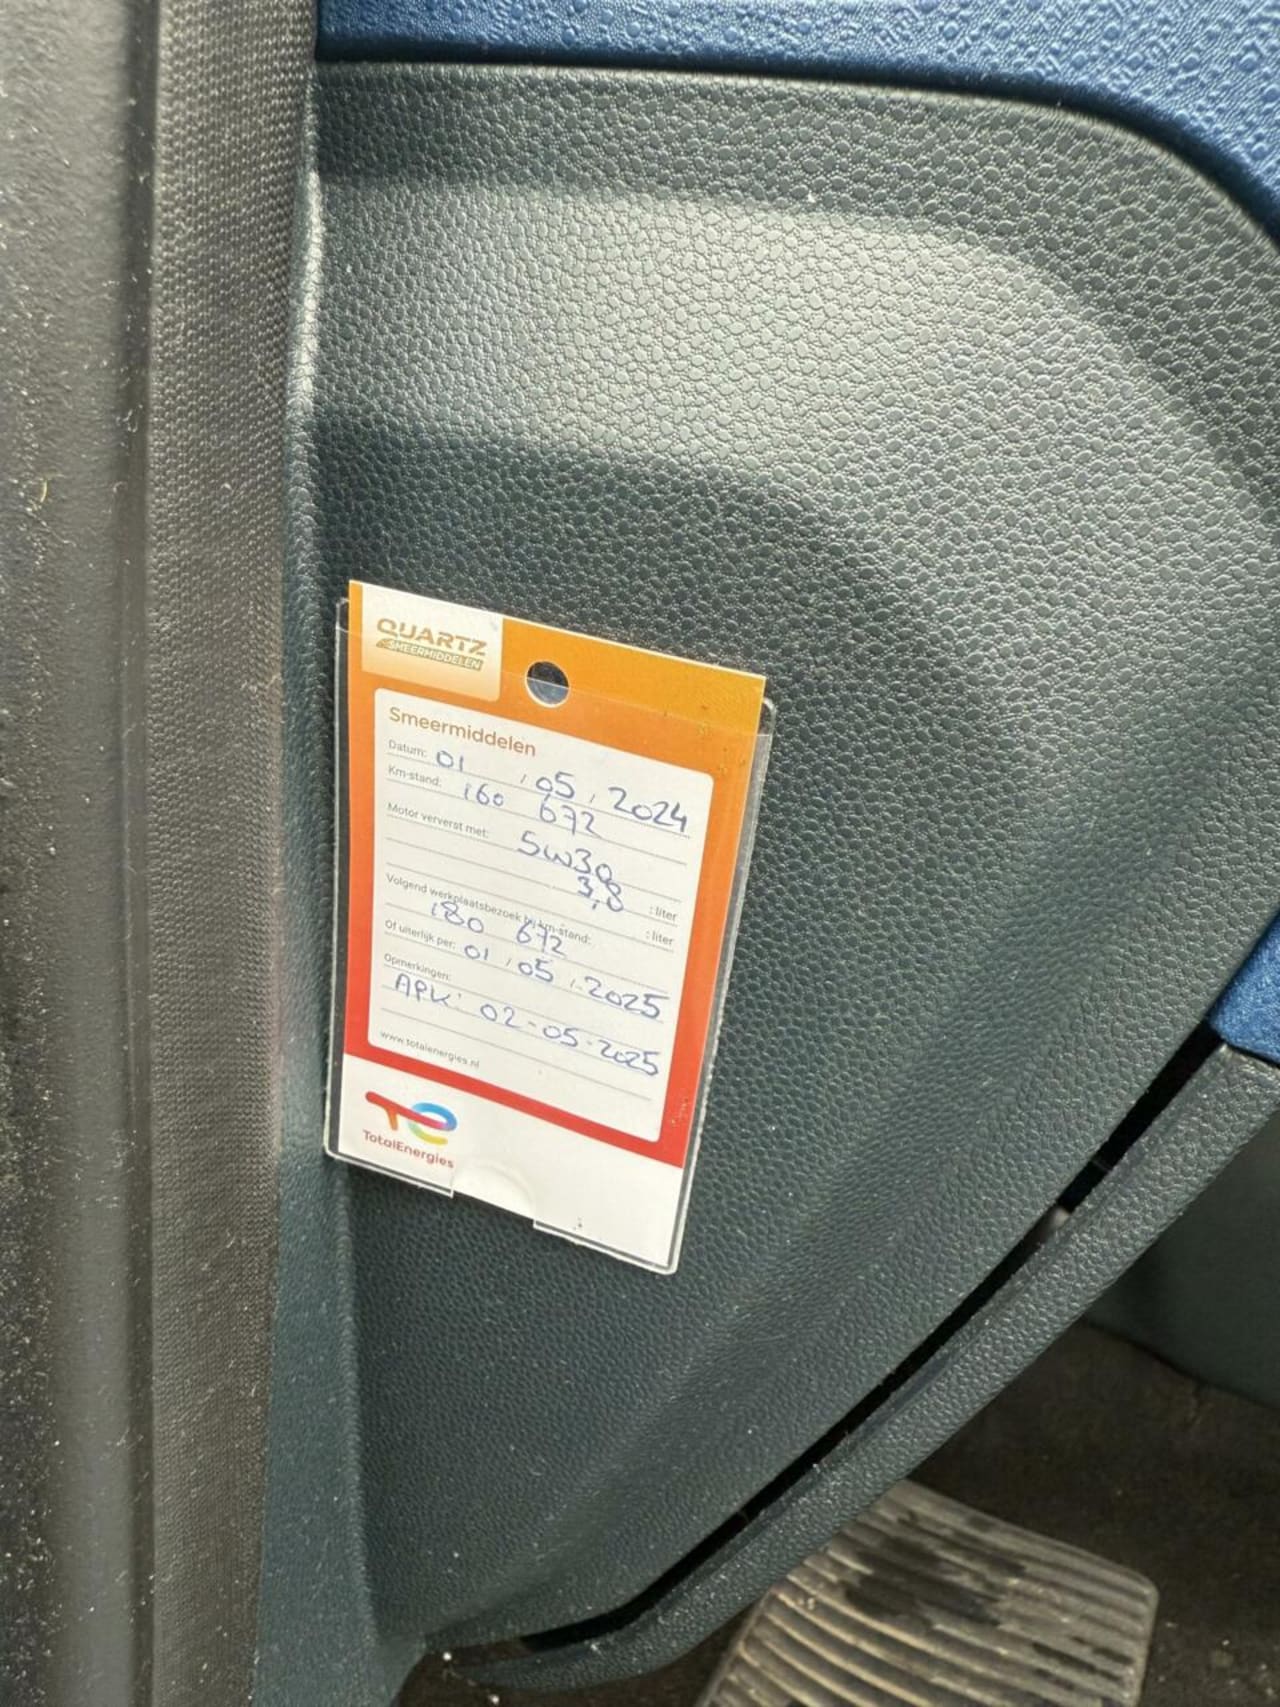 QUARTZ
SMEERMIDDELEN
Smeermiddelen
Datum: 01 / 05 / 2024
Km-stand: 160 672
Motor ververst met: 5W30
3,8 : liter
: liter
Volgend werkplaatsbezoek bij km-stand:
180 672
Of uiterlijk per: 01 / 05 / 2025
Opmerkingen:
APK: 02-05-2025
www.totalenergies.nl
TotalEnergies